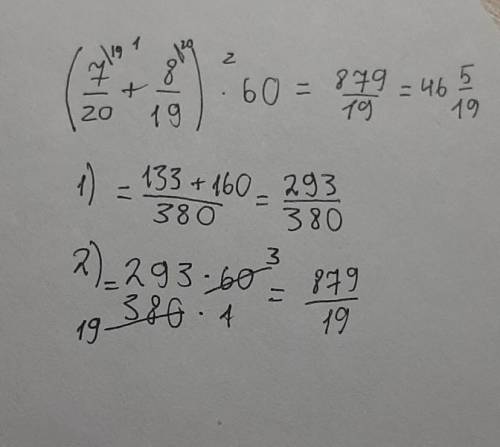 (7\19/20 +¹ 8\20/19) ·² 60 = 879/19 = 46 5/19
1) = 133 + 160/380 = 293/380
2) = 293 · 60 3/19 380 · 1 = 879/19